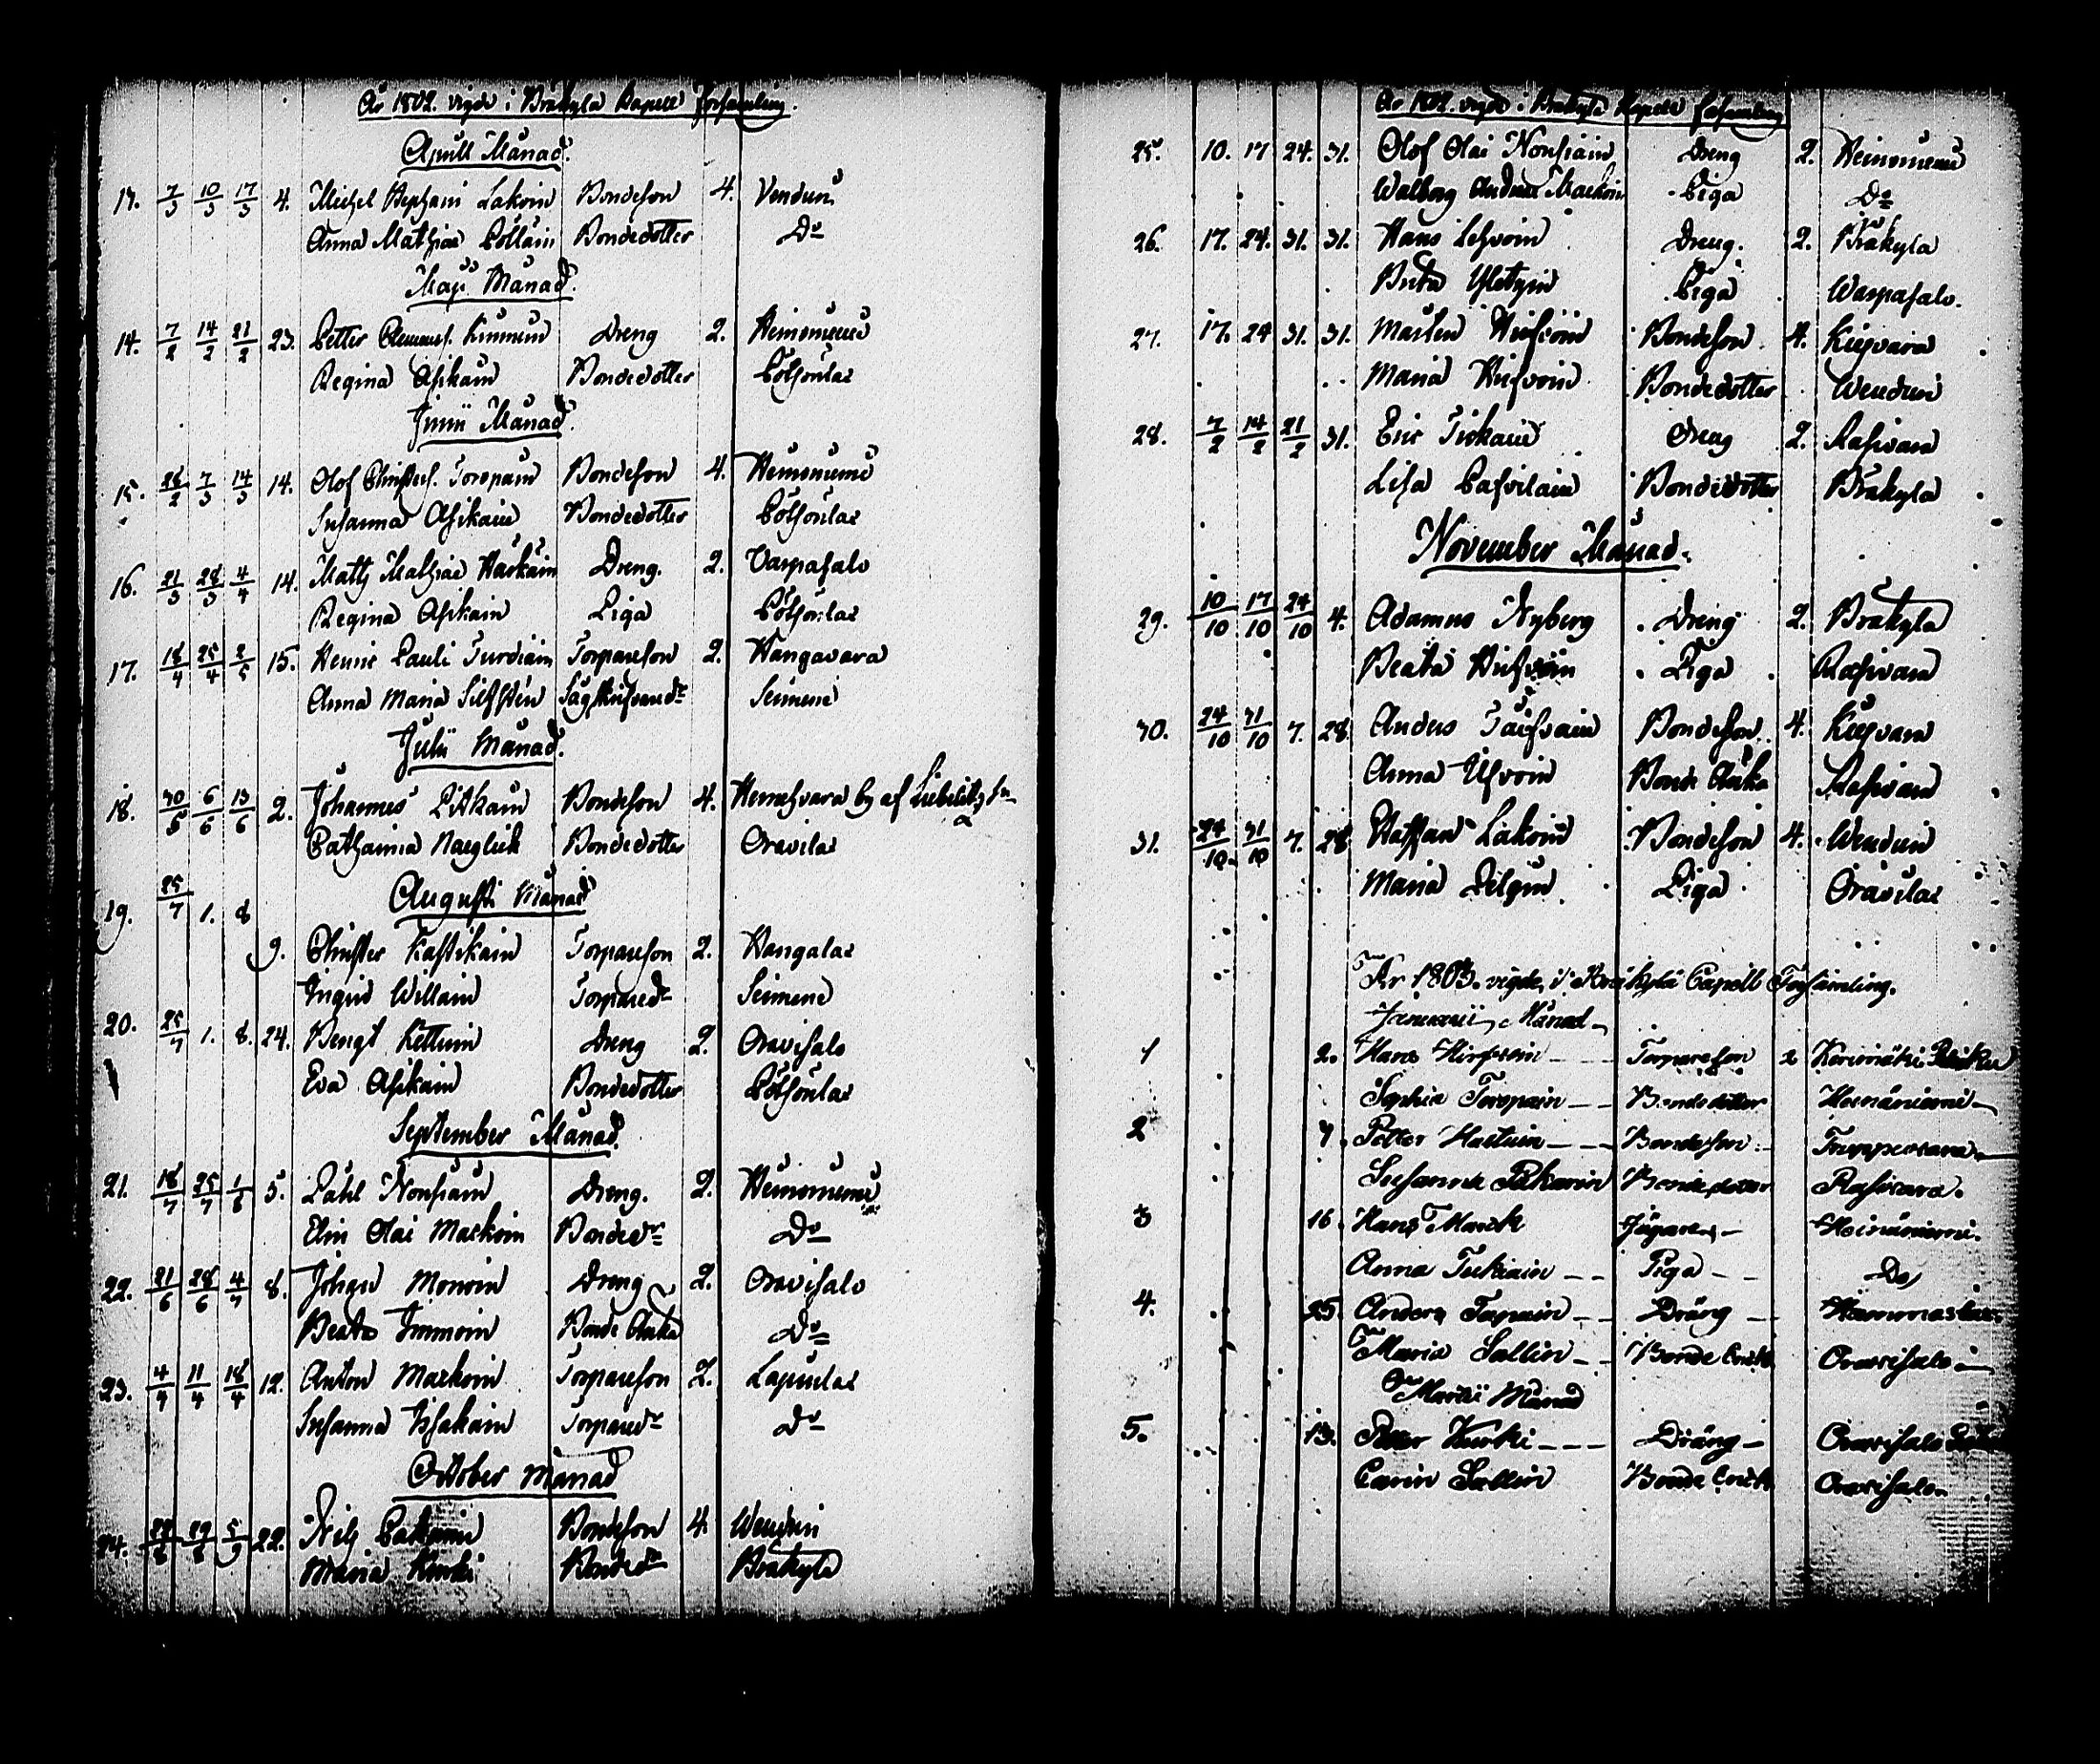 År 1802. vigde i Bräkylä Capell församling.
April Månad.
13. 7/3 10/3 17/3 4. Michel Stephani Lakoin Bondeson 4. Venduri
Anna Mathiae Bollain Bondedotter Do
Maji Månad.
14. 7/2 14/2 21/2 23. Petter Clemensf. Kinnunen Dreng 2. Heinoniemi
Regina Asikain Bondedotter Potsonlax
Junii Månad.
15. 28/2 7/3 14/3 14. Olof Christerf. Toropain Bondeson 4. Heinoniemi
Susanna Asikain Bondedotter Potsonlax
16. 21/3 28/3 4/4 14. Matts Mathiae Karkain Dreng. 2. Varpasalo
Regina Asikain Piga Potsonlax
17. 18/4 25/4 2/5 15. Henric Pauli Turoiain Torpareson 2. Hangavara
Anna Maria Sieffsten Seimeni
Julii Månad.
18. 30/5 6/6 13/6 2. Johannes Pitkain Bondeson 4. by af Liebelitz Sn
Catharina Naeglick Bondedotter Oravilax
Augusti Månad
19. 25/7 1. 8
9. Christer Kastikain Torpareson 2. Hangalax
Ingrid Willain Torpared:r Seimeni
20. 25/7 1. 8. 24. Bengt Kettuin Dreng 2. Oravisalo
Eva Asikain Bondedotter Potsonlax
September Månad.
21. 18/7 25/7 1/8 5. Påhl Nousiain Dreng. 2. Heinoniemi
Elin Olai Maekoin Bonded:r Do
22. 21/6 28/6 4/7 8. Johan Monoin Dreng 2. Oravisalo
Beata Immoin Bonde Änka Do
23. 4/4 11/4 18/4 12. Anton Markoin Torpareson 2. Lapinlax
Susanna Issakain Torpared:r Do
October Månad
24. 29/8 5/9 22. Nils Bondeson 4. Venduri
Maria Kurki Bonded:r Bräkylä
År 1802. vigde i Bräkylä Capell församling
25. 10. 17 24. 31. Olof Olai Nousiain Dreng 2. Heinoniemi
Walborg Andreae Maekoin Piga Do
26. 17. 24. 31. 31. Hans Lehvoin Dreng. 2. Bräkylä
Brita Piga Warpasalo.
27. 17. 24 31. 31. Marten Hirfvoin Bondeson 4. Kiesvara
Maria Hirfvoin Bondedotter Wenduri
28. 7/2 14/2 21/2 31. Eric Tirkain Dreng 2. Rasivara
Lisa Pasvilain Bondedotter Bräkylä
November Månad.
29. 10/10 17/10 24/10 4. Adamus Nyberg Dreng 2. Bräkylä
Beata Hirfvoin Piga Rasivara
30. 24/10 31/10 7. 28. Anders Bondeson 4. Kiesvara
Anna Bonde Änka Rasivara
31. 24/10 31/10 7. 28 Staffan Lakoin Bondeson 4. Wenduri
Maria Piga Oravilax
År 1803. vigde, i Bräkylä Capell Församling.
Januarii Månad
1 2. Hans Hirfvoin Torpareson 2 Kerimäki
Sophia Toropain Bondedotter Heinäniemi
2 7. Petter Hactuin Bondeson Tuppuravara
Susanna Bondedotter Rasivara.
3 16. Hans Marck Jägare Heinäniemi.
Anna Turkiain Piga Do
4. 25. Anders Tapain Dräng Hammaslax
Maria Sallin Bonde Enck. Oravisalo
Martii Månad
5. 13. Petter Kurki Dräng Oravisalo
Carin Sallin Bonde Enck. Oravisalo